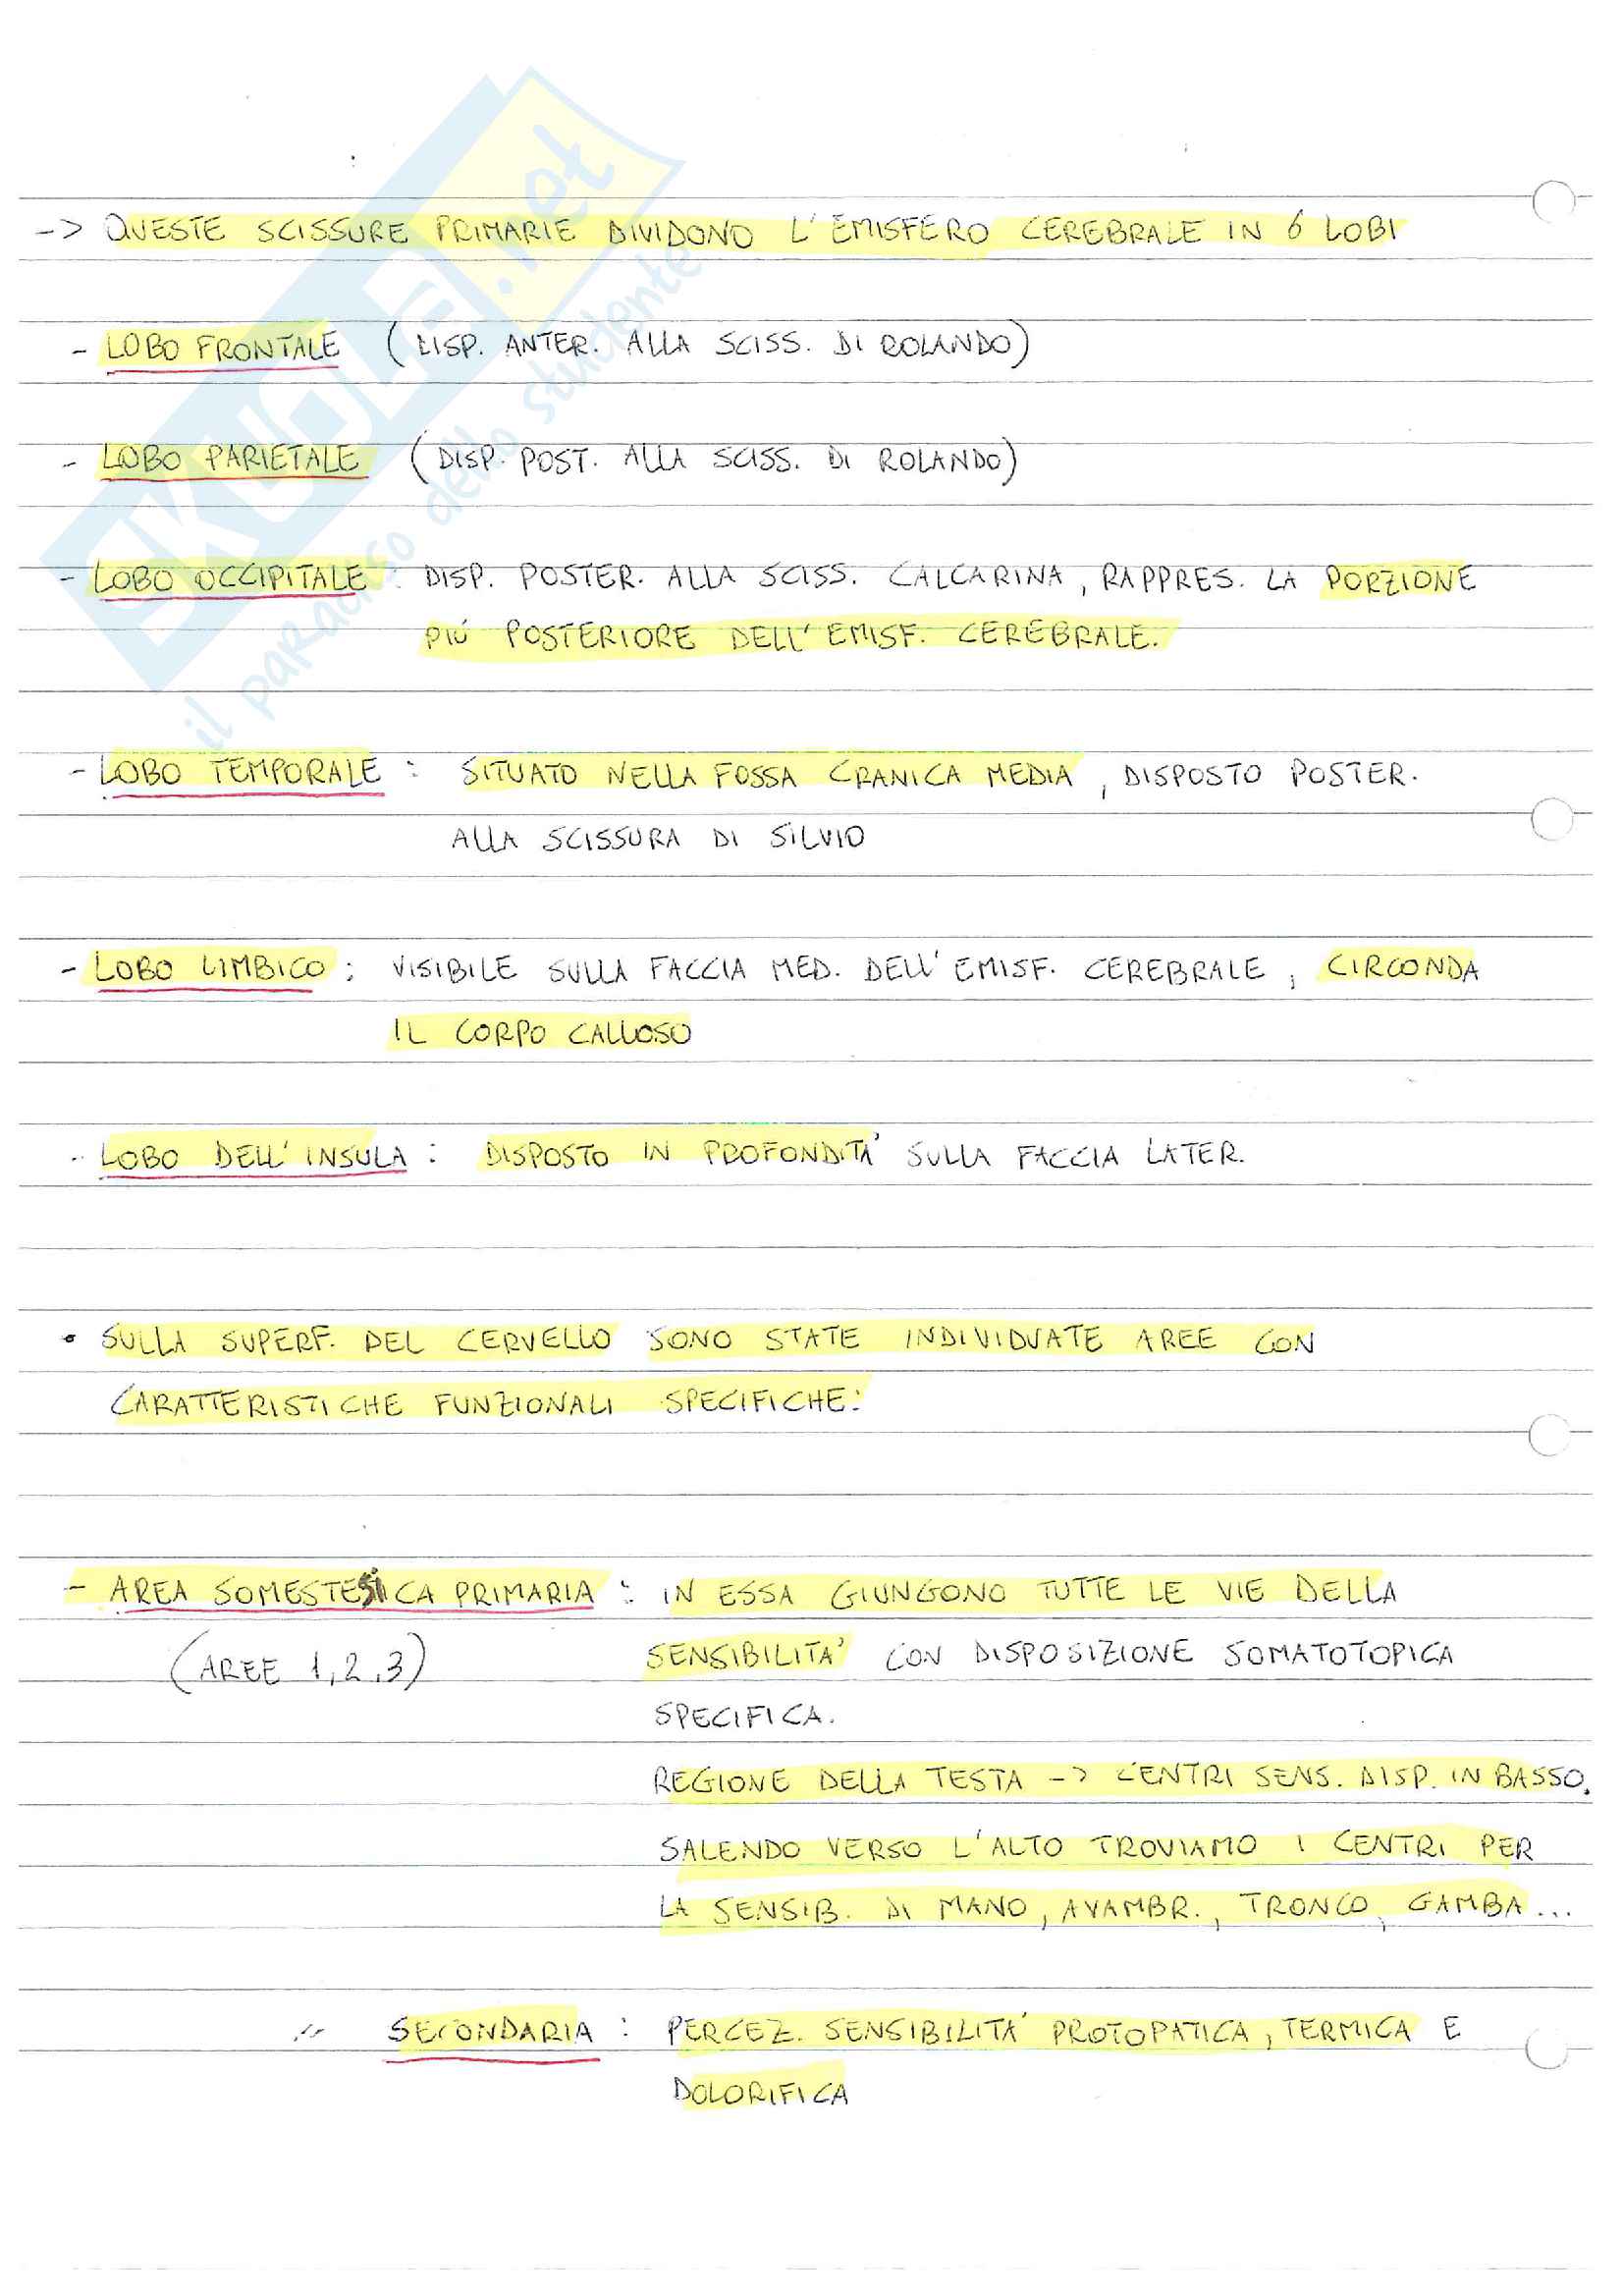 -> QUESTE SCISSURE PRIMARIE DIVIDONO L'EMISFERO CEREBRALE IN 6 LOBI
- LOBO FRONTALE (DISP. ANTER. ALLA SCISS. DI ROLANDO)
- LOBO PARIETALE (DISP. POST. ALLA SCISS. DI ROLANDO)
- LOBO OCCIPITALE : DISP. POSTER. ALLA SCISS. CALCARINA, RAPPRES. LA PORZIONE
PIÚ POSTERIORE DELL'EMISF. CEREBRALE.
- LOBO TEMPORALE : SITUATO NELLA FOSSA CRANICA MEDIA, DISPOSTO POSTER.
ALLA SCISSURA DI SILVIO
- LOBO LIMBICO : VISIBILE SULLA FACCIA MED. DELL'EMISF. CEREBRALE, CIRCONDA
IL CORPO CALLOSO
- LOBO DELL'INSULA : DISPOSTO IN PROFONDITA' SULLA FACCIA LATER.
• SULLA SUPERF. DEL CERVELLO SONO STATE INDIVIDUATE AREE CON
CARATTERISTICHE FUNZIONALI SPECIFICHE:
- AREA SOMESTESICA PRIMARIA : IN ESSA GIUNGONO TUTTE LE VIE DELLA
(AREE 1,2,3) SENSIBILITA' CON DISPOSIZIONE SOMATOTOPICA
SPECIFICA.
REGIONE DELLA TESTA -> CENTRI SENS. DISP. IN BASSO.
SALENDO VERSO L'ALTO TROVIAMO I CENTRI PER
LA SENSIB. DI MANO, AVAMBR., TRONCO, GAMBA...
" SECONDARIA : PERCEZ. SENSIBILITA' PROTOPATICA, TERMICA E
DOLORIFICA
SKUOLA.net
il paradiso dello studente